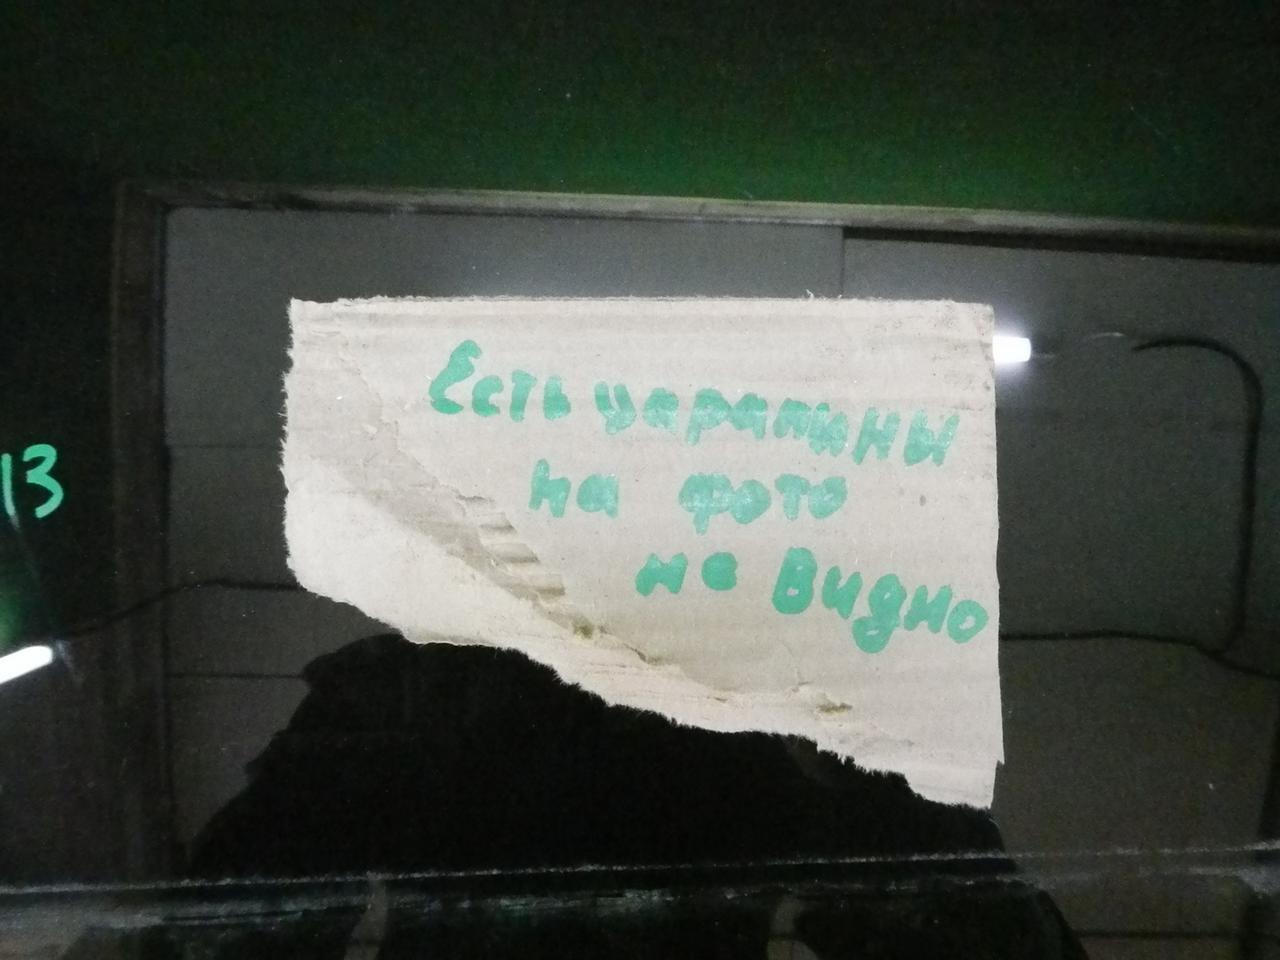 Есть царапины
на фото
не видно
13